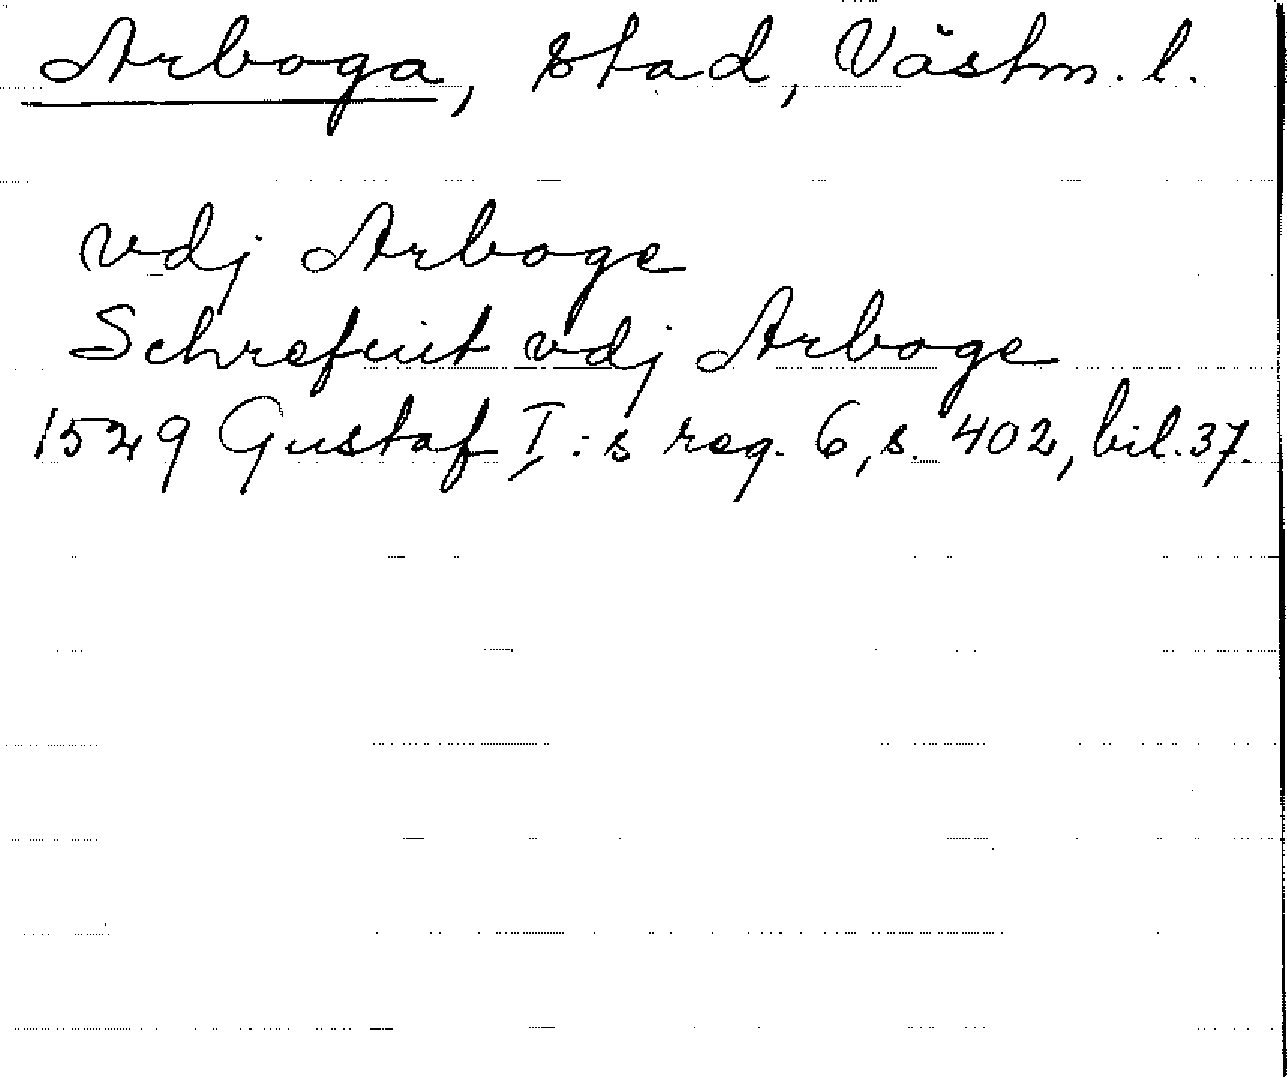 Arboga, stad, Västm. l.
vdj Arboge
Schrefuit vdj Arboge
1529 Gustaf I:s reg. 6, s. 402, bil. 37.